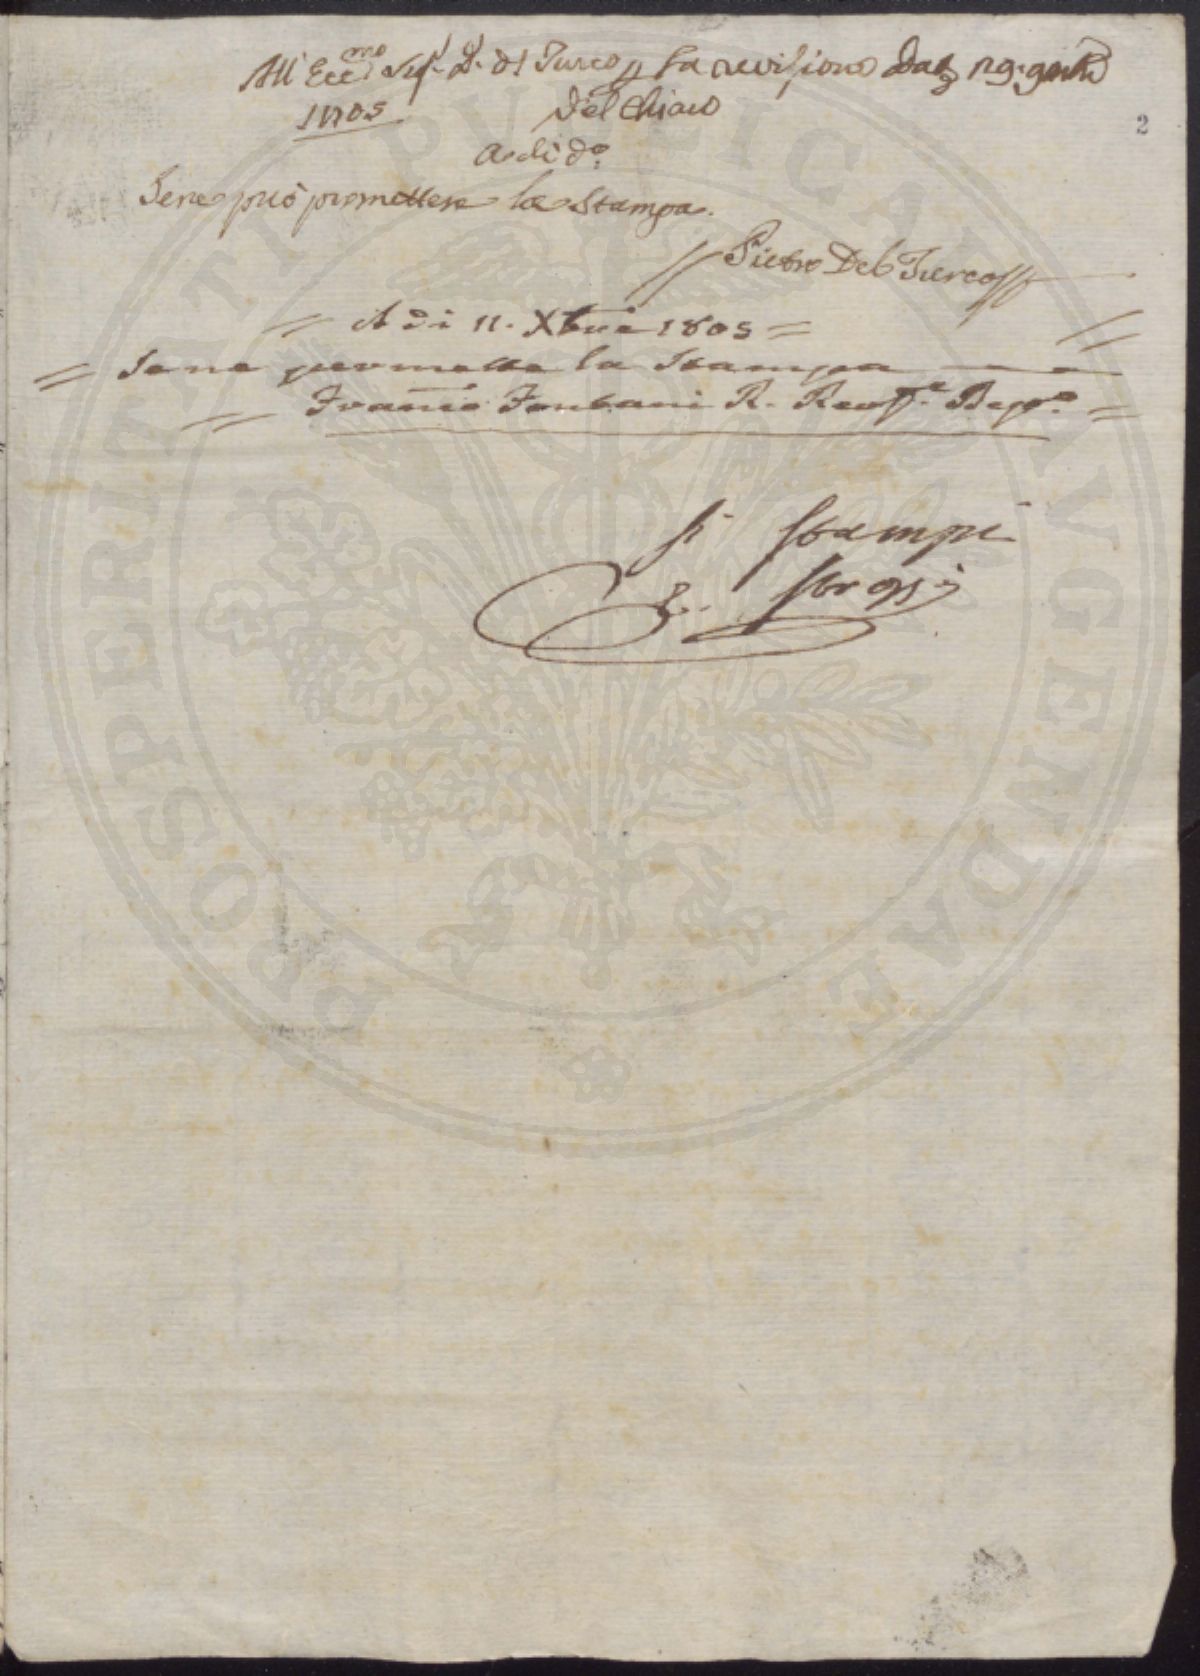 All' Ecc.mo Sig. D. Turco la revisione
1805 Del Chiaro
2
A di d.o
Se ne può promettere la Stampa.
Pietro Del Turco
A di 11. Xbre 1805
Se ne permette la Stampa
Franc.o Fontani R.
Si Stampi
PROSPERITATI PVBLICAE AVGENDAE